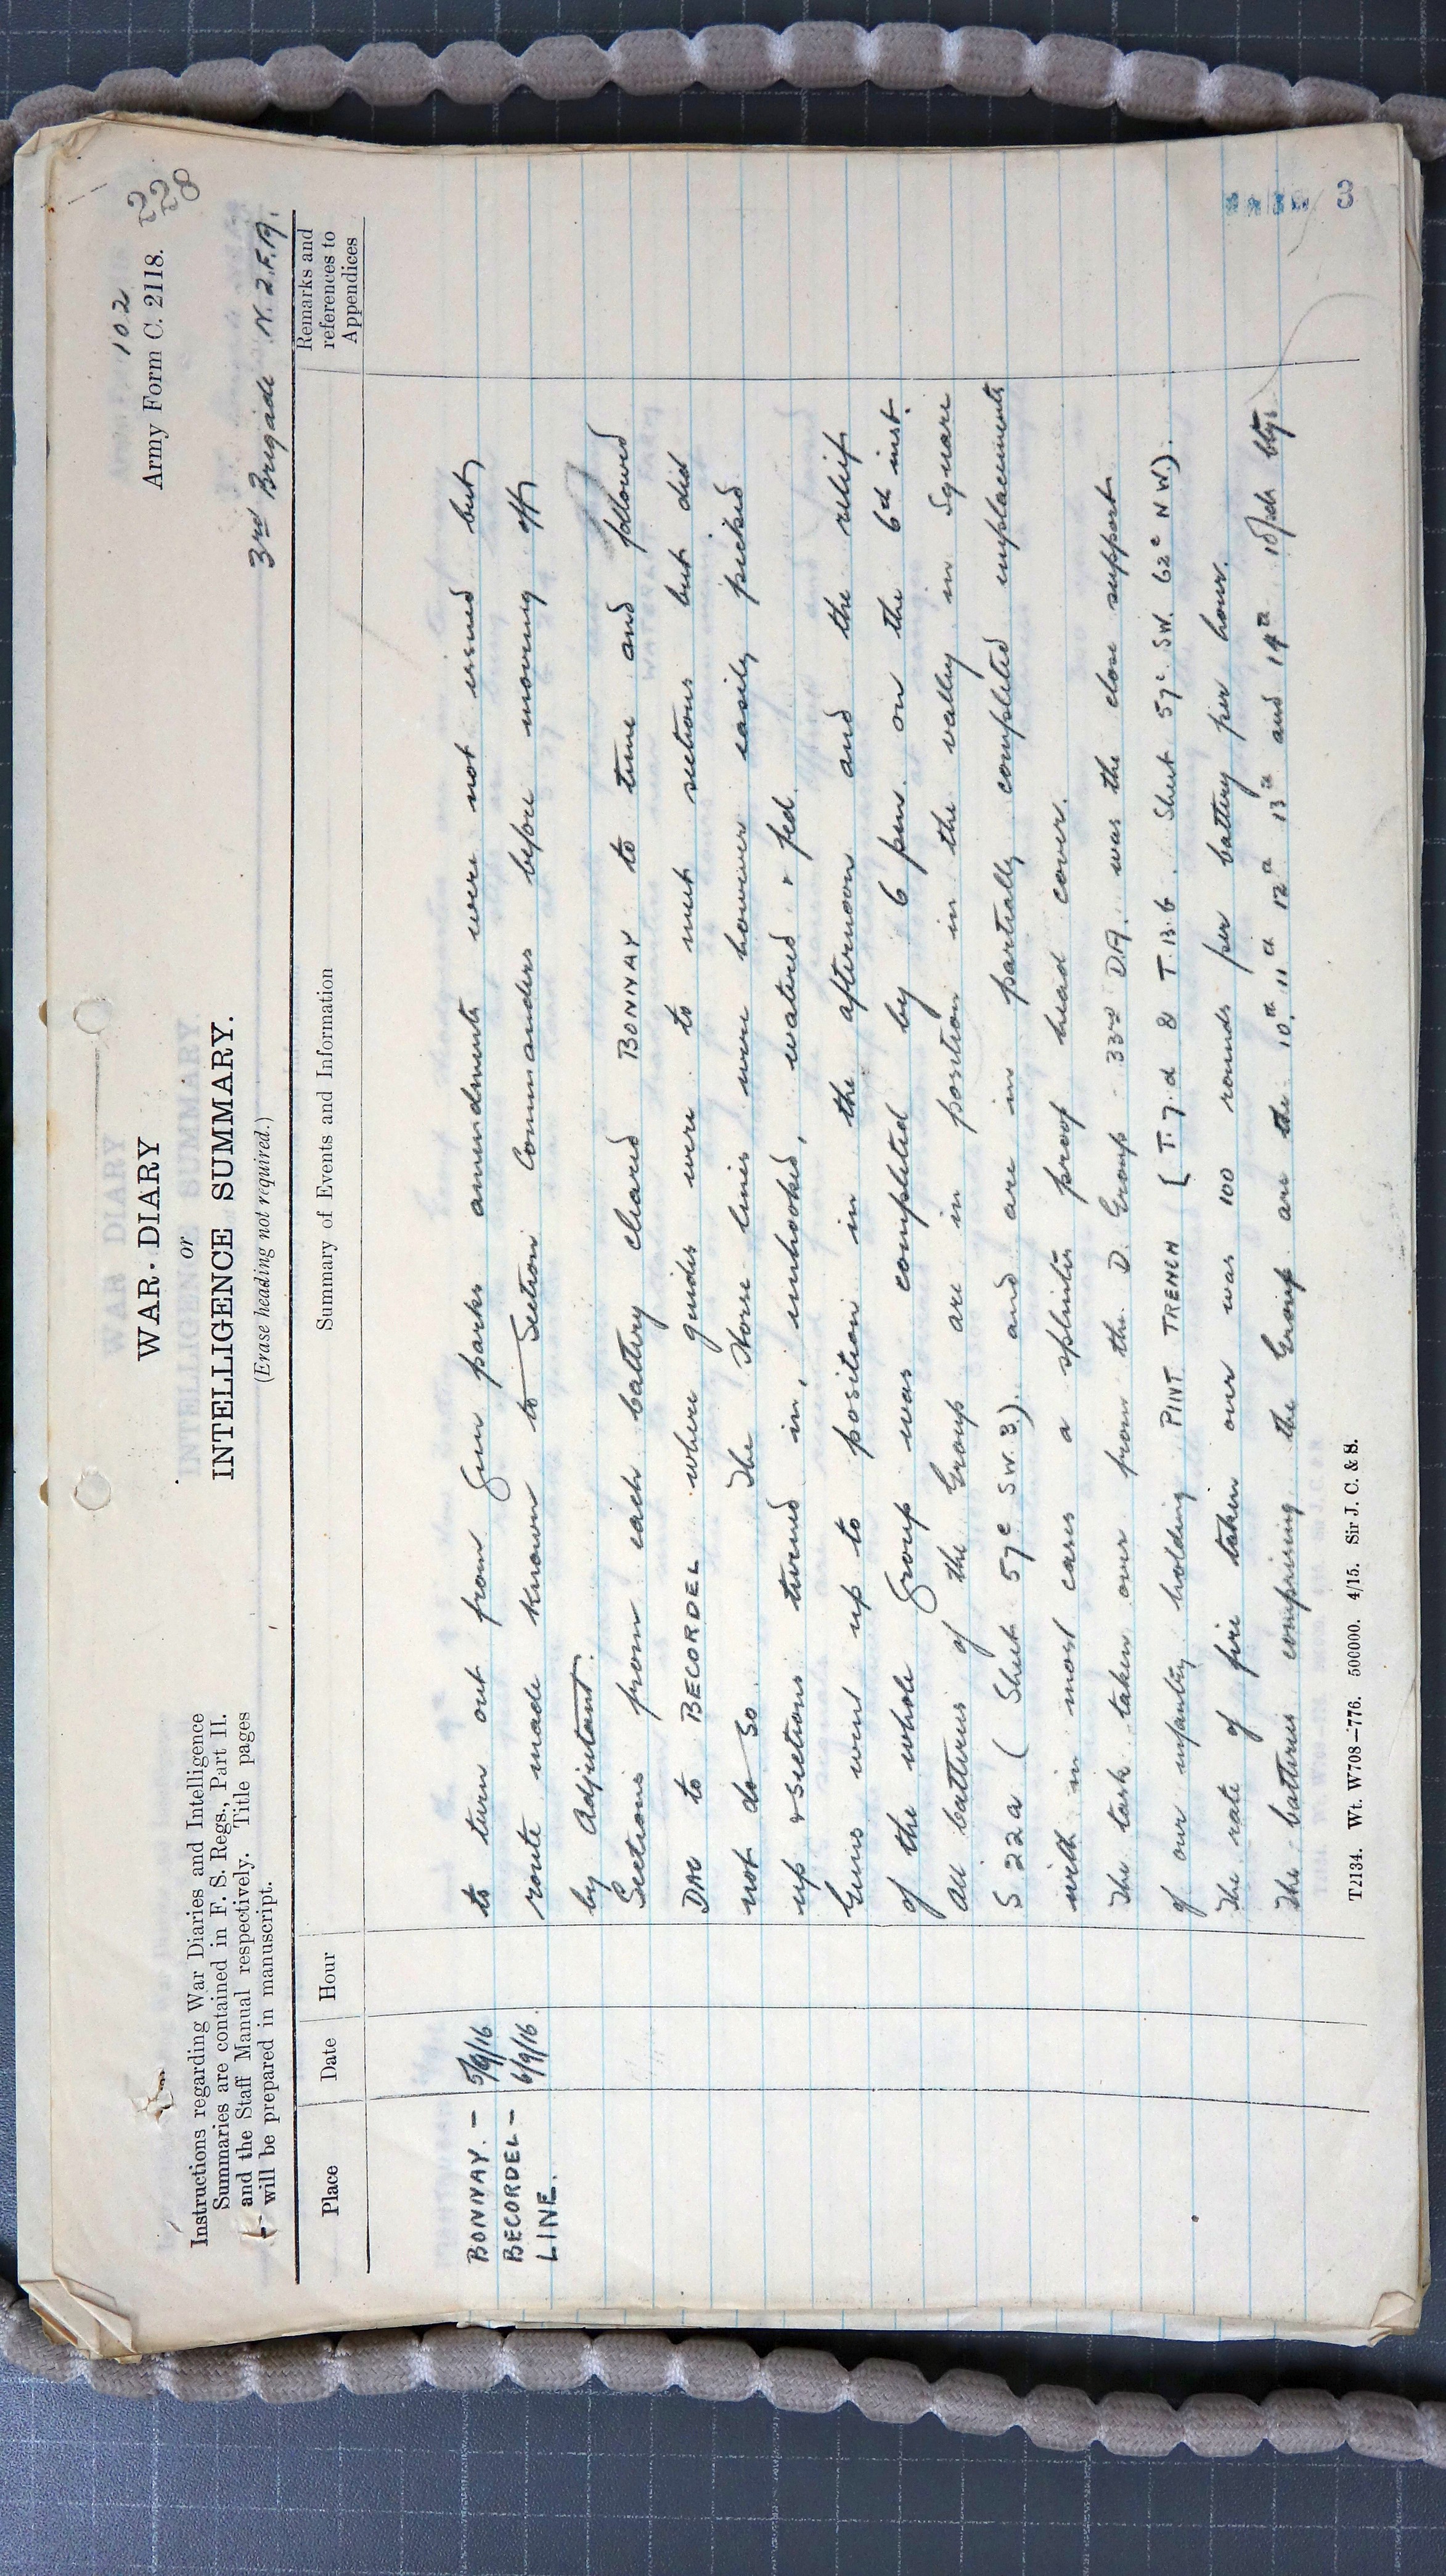 102
Army Form C. 2118.
228
WAR DIARY
or
INTELLIGENCE SUMMARY.
(Erase heading not required.)
3rd Brigade N.Z.F.A.
Instructions regarding War Diaries and Intelligence
Summaries are contained in F. S. Regs., Part II.
and the Staff Manual respectively. Title pages
will be prepared in manuscript.
Place Date Hour Summary of Events and Information Remarks and
references to
Appendices
BONNAY. – 5/9/16 to turn out from Gun parks amendments were not issued but
BECORDEL – 6/9/16 route made known to Section Commanders before moving off
LINE. by Adjutant.
Sections from each battery cleared BONNAY to time and followed
DAC to BECORDEL where guides were to meet sections but did
not do so. The Horse lines were however easily picked
up & sections turned in, unhooked, watered & fed.
Guns went up to position in the afternoon and the relief
of the whole Group was completed by 6 pm. on the 6th inst.
All batteries of the Group are in position in the valley in Square
S 22 a (Sheet 57c SW 3). and are in partially completed emplacements
with in most cases a splinter proof head cover.
The task taken over from the D. Group 33rd D.A. was the close support
of our infantry holding PINT TRENCH (T. 7. d & T. 13. b. Sheet 57c SW. 62c NW.).
The rate of fire taken over was 100 rounds per battery per hour.
The batteries comprising the Group are the 10th 11th 12th 13th and 14th btys.
T2134. Wt. W708–776. 500000. 4/15. Sir J. C. & S.
3